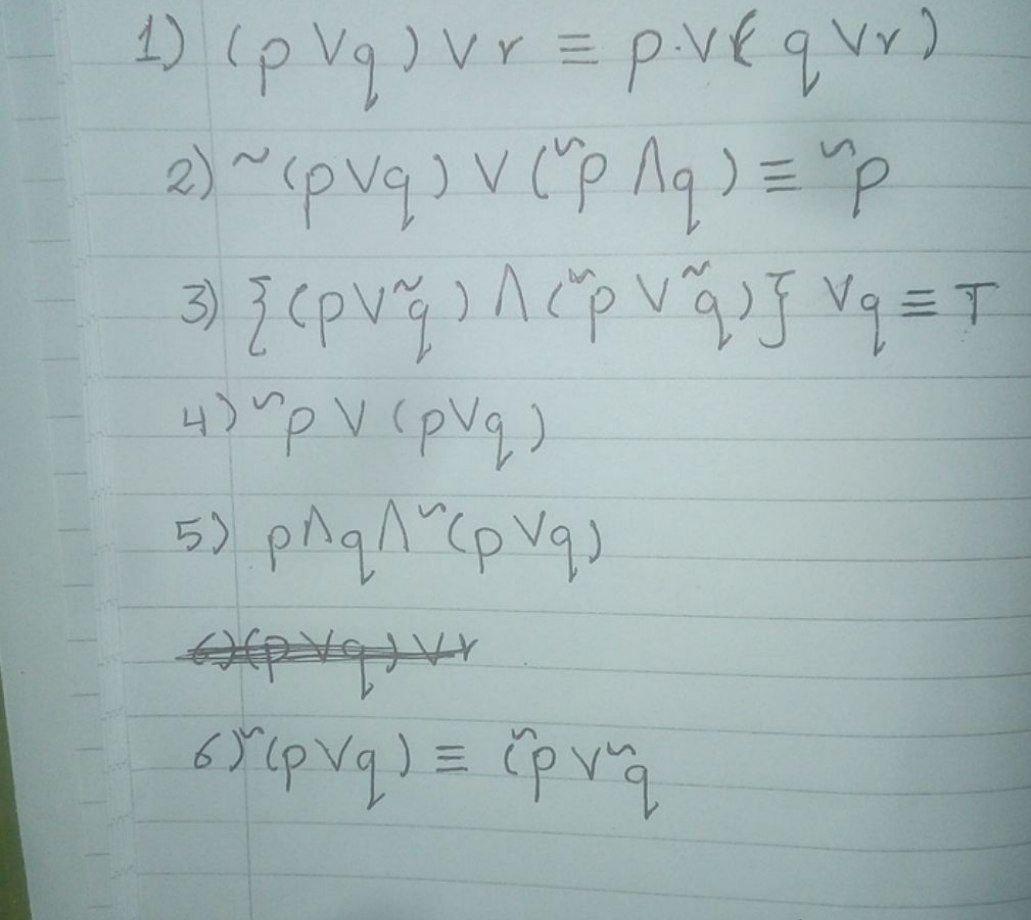 1) (p ∨ q) ∨ r ≡ p . ∨ ( q ∨ r )
2) ~(p ∨ q) ∨ (~p ∧ q) ≡ ~p
3) {(p ∨ ~q) ∧ (~p ∨ ~q)} ∨ q ≡ T
4) ~p ∨ (p ∨ q)
5) p ∧ q ∧ ~(p ∨ q)
6) (p ∨ q) ∨ r
6) ~(p ∨ q) ≡ (~p ∨ ~q